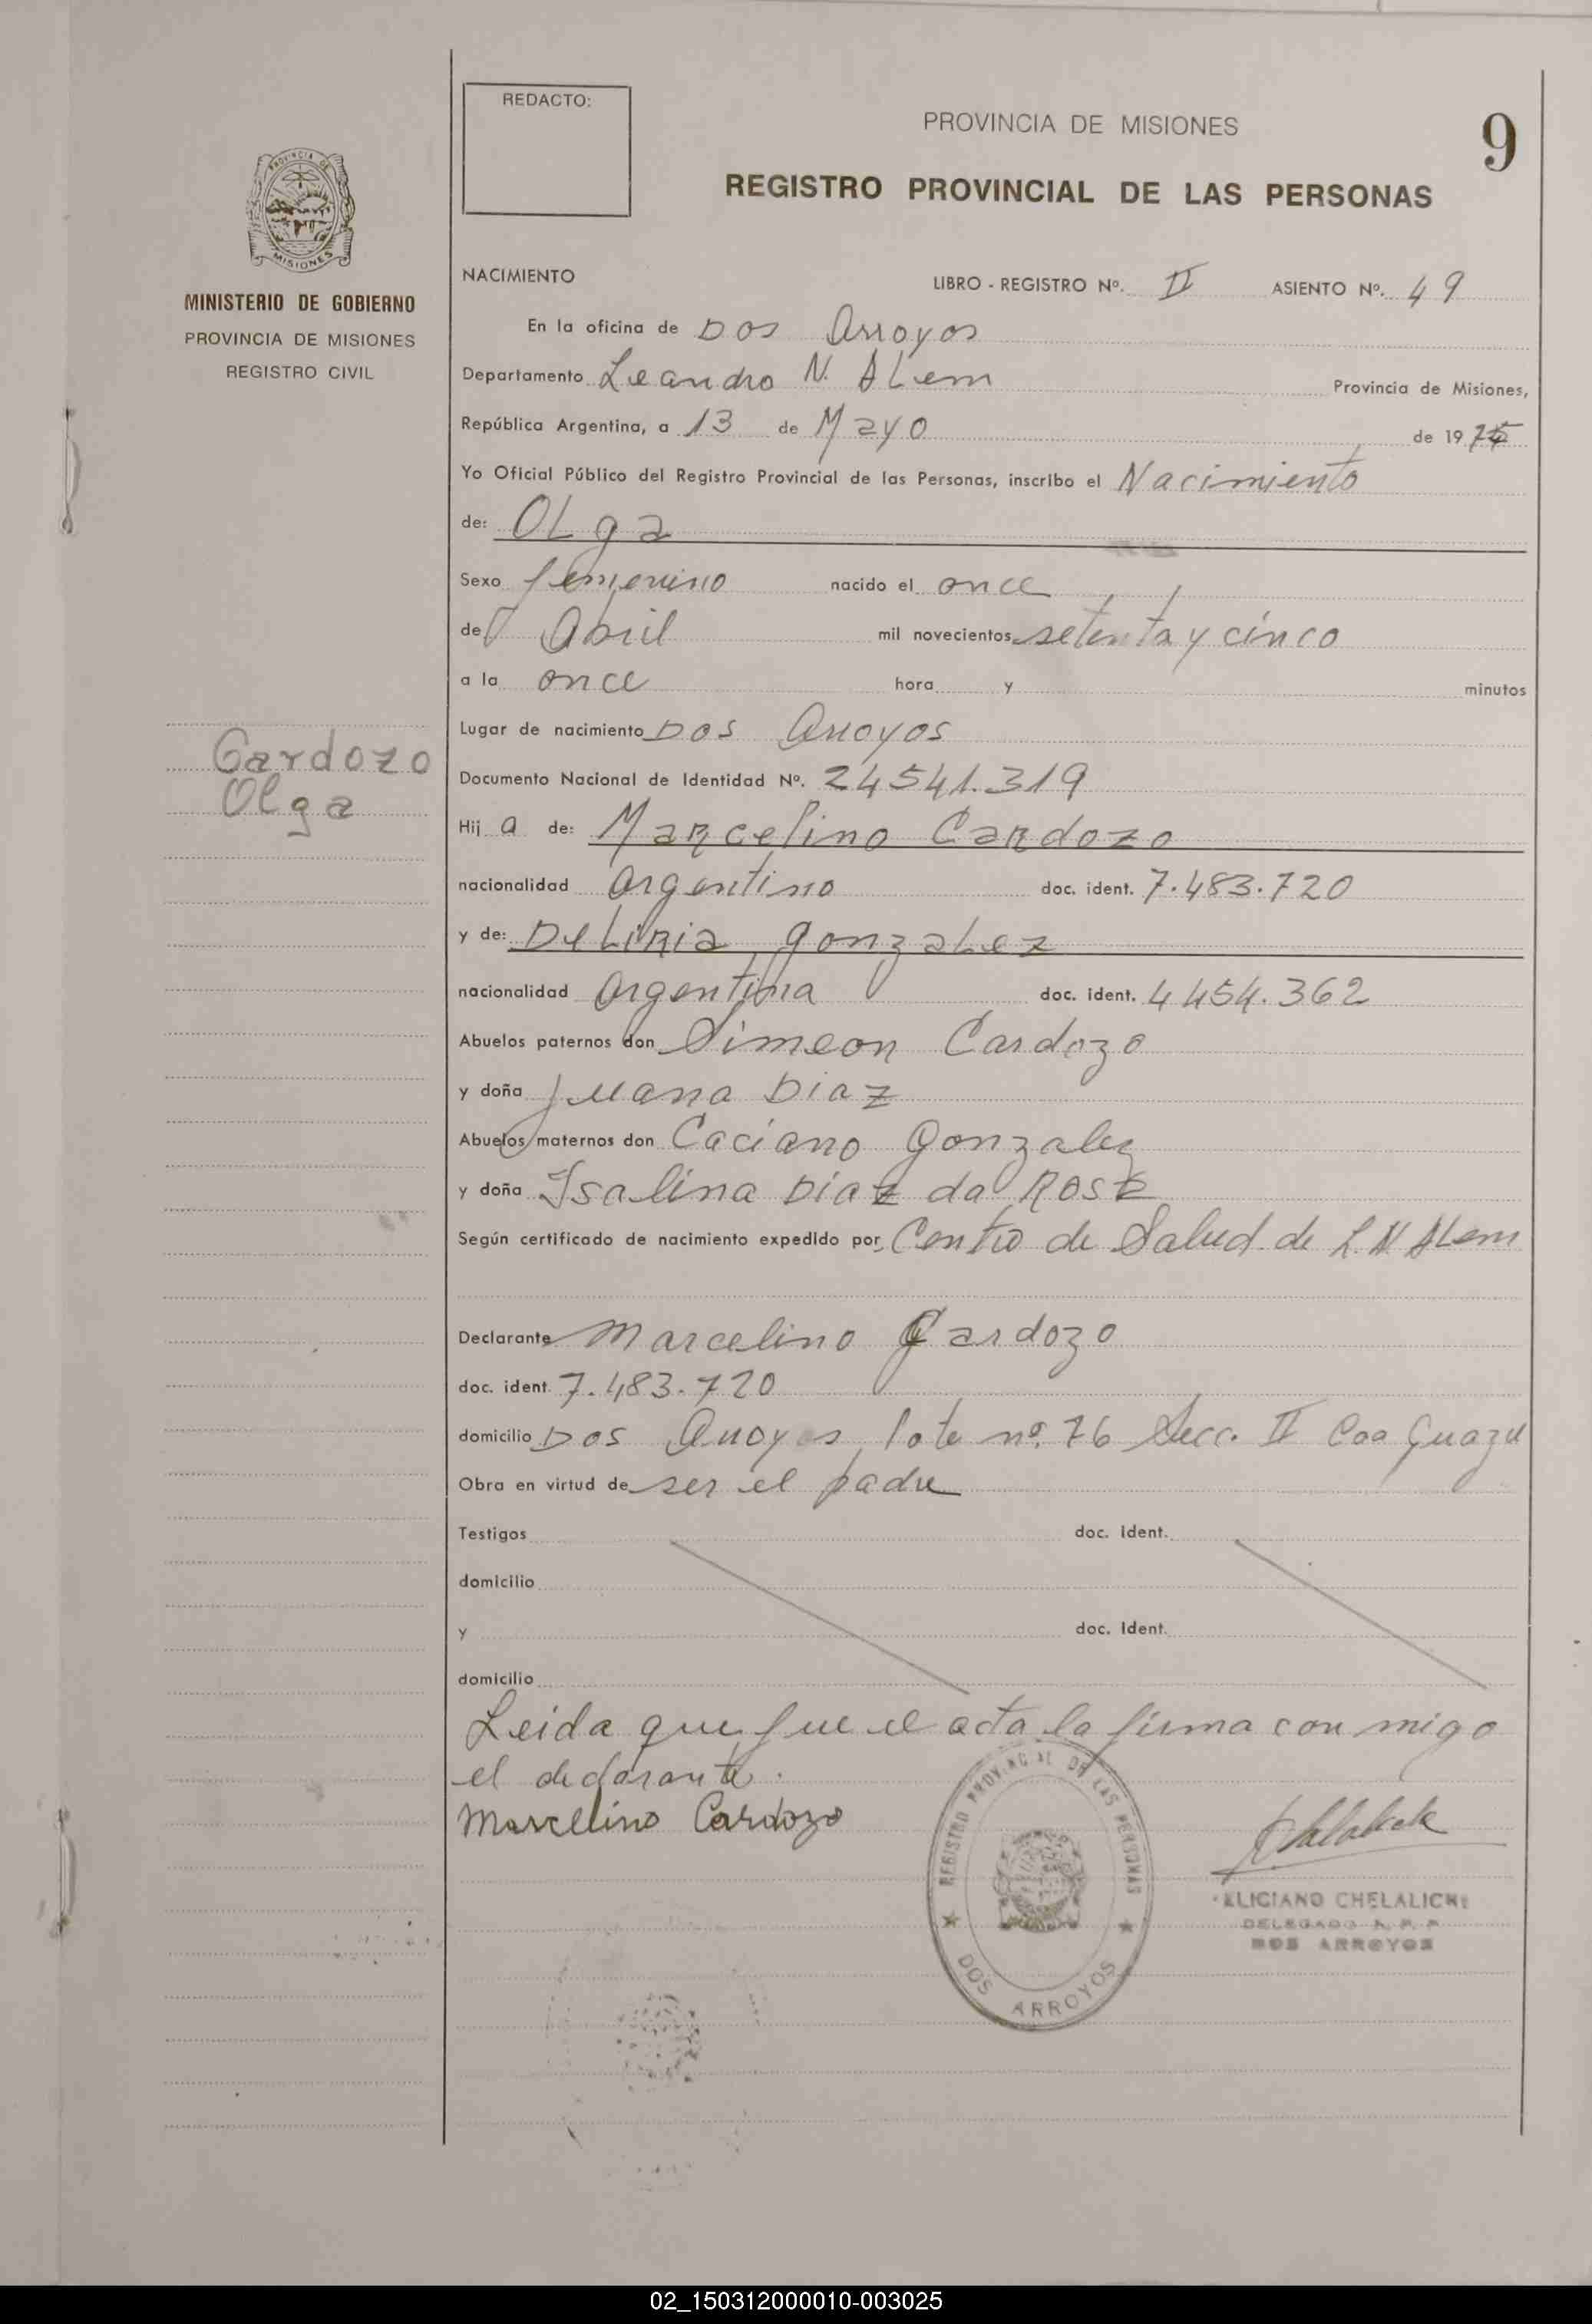 REDACTO:
PROVINCIA DE MISIONES
9
REGISTRO PROVINCIAL DE LAS PERSONAS
PROVINCIA DE
MISIONES
MINISTERIO DE GOBIERNO
PROVINCIA DE MISIONES
REGISTRO CIVIL
NACIMIENTO LIBRO - REGISTRO Nº. II ASIENTO Nº. 49
En la oficina de Dos Arroyos
Departamento Leandro N. ALem Provincia de Misiones,
República Argentina, a 13 de Mayo de 1975
Yo Oficial Público del Registro Provincial de las Personas, inscribo el Nacimiento
de: OLga
Sexo femenino nacido el once
de Abril mil novecientos setenta y cinco
a la once hora y minutos
Lugar de nacimiento Dos Arroyos
Cardozo
Olga
Documento Nacional de Identidad Nº. 24541.319
Hij a de: Marcelino Cardozo
nacionalidad argentino doc. ident. 7.483.720
y de: DeLiria gonzaLez
nacionalidad argentina doc. ident. 4454.362
Abuelos paternos don Simeon Cardozo
y doña Juana Diaz
Abuelos maternos don Caciano gonzalez
y doña Isalina Diaz da Rosa
Según certificado de nacimiento expedido por Centro de Salud de L.N ALem
Declarante Marcelino Cardozo
doc. ident. 7.483.720
domicilio Dos Arroyos, lote nº. 76 Secc. II Caa Guazu
Obra en virtud de ser el padre
Testigos doc. Ident.
domicilio
y doc. Ident.
domicilio
Leida que fue el acta la firma con migo
el declarante.
Marcelino Cardozo
REGISTRO PROVINCIAL DE LAS PERSONAS
DOS ARROYOS
ELICIANO CHELALICHE
DELEGADO R. P. P.
DOS ARROYOS
02_150312000010-003025